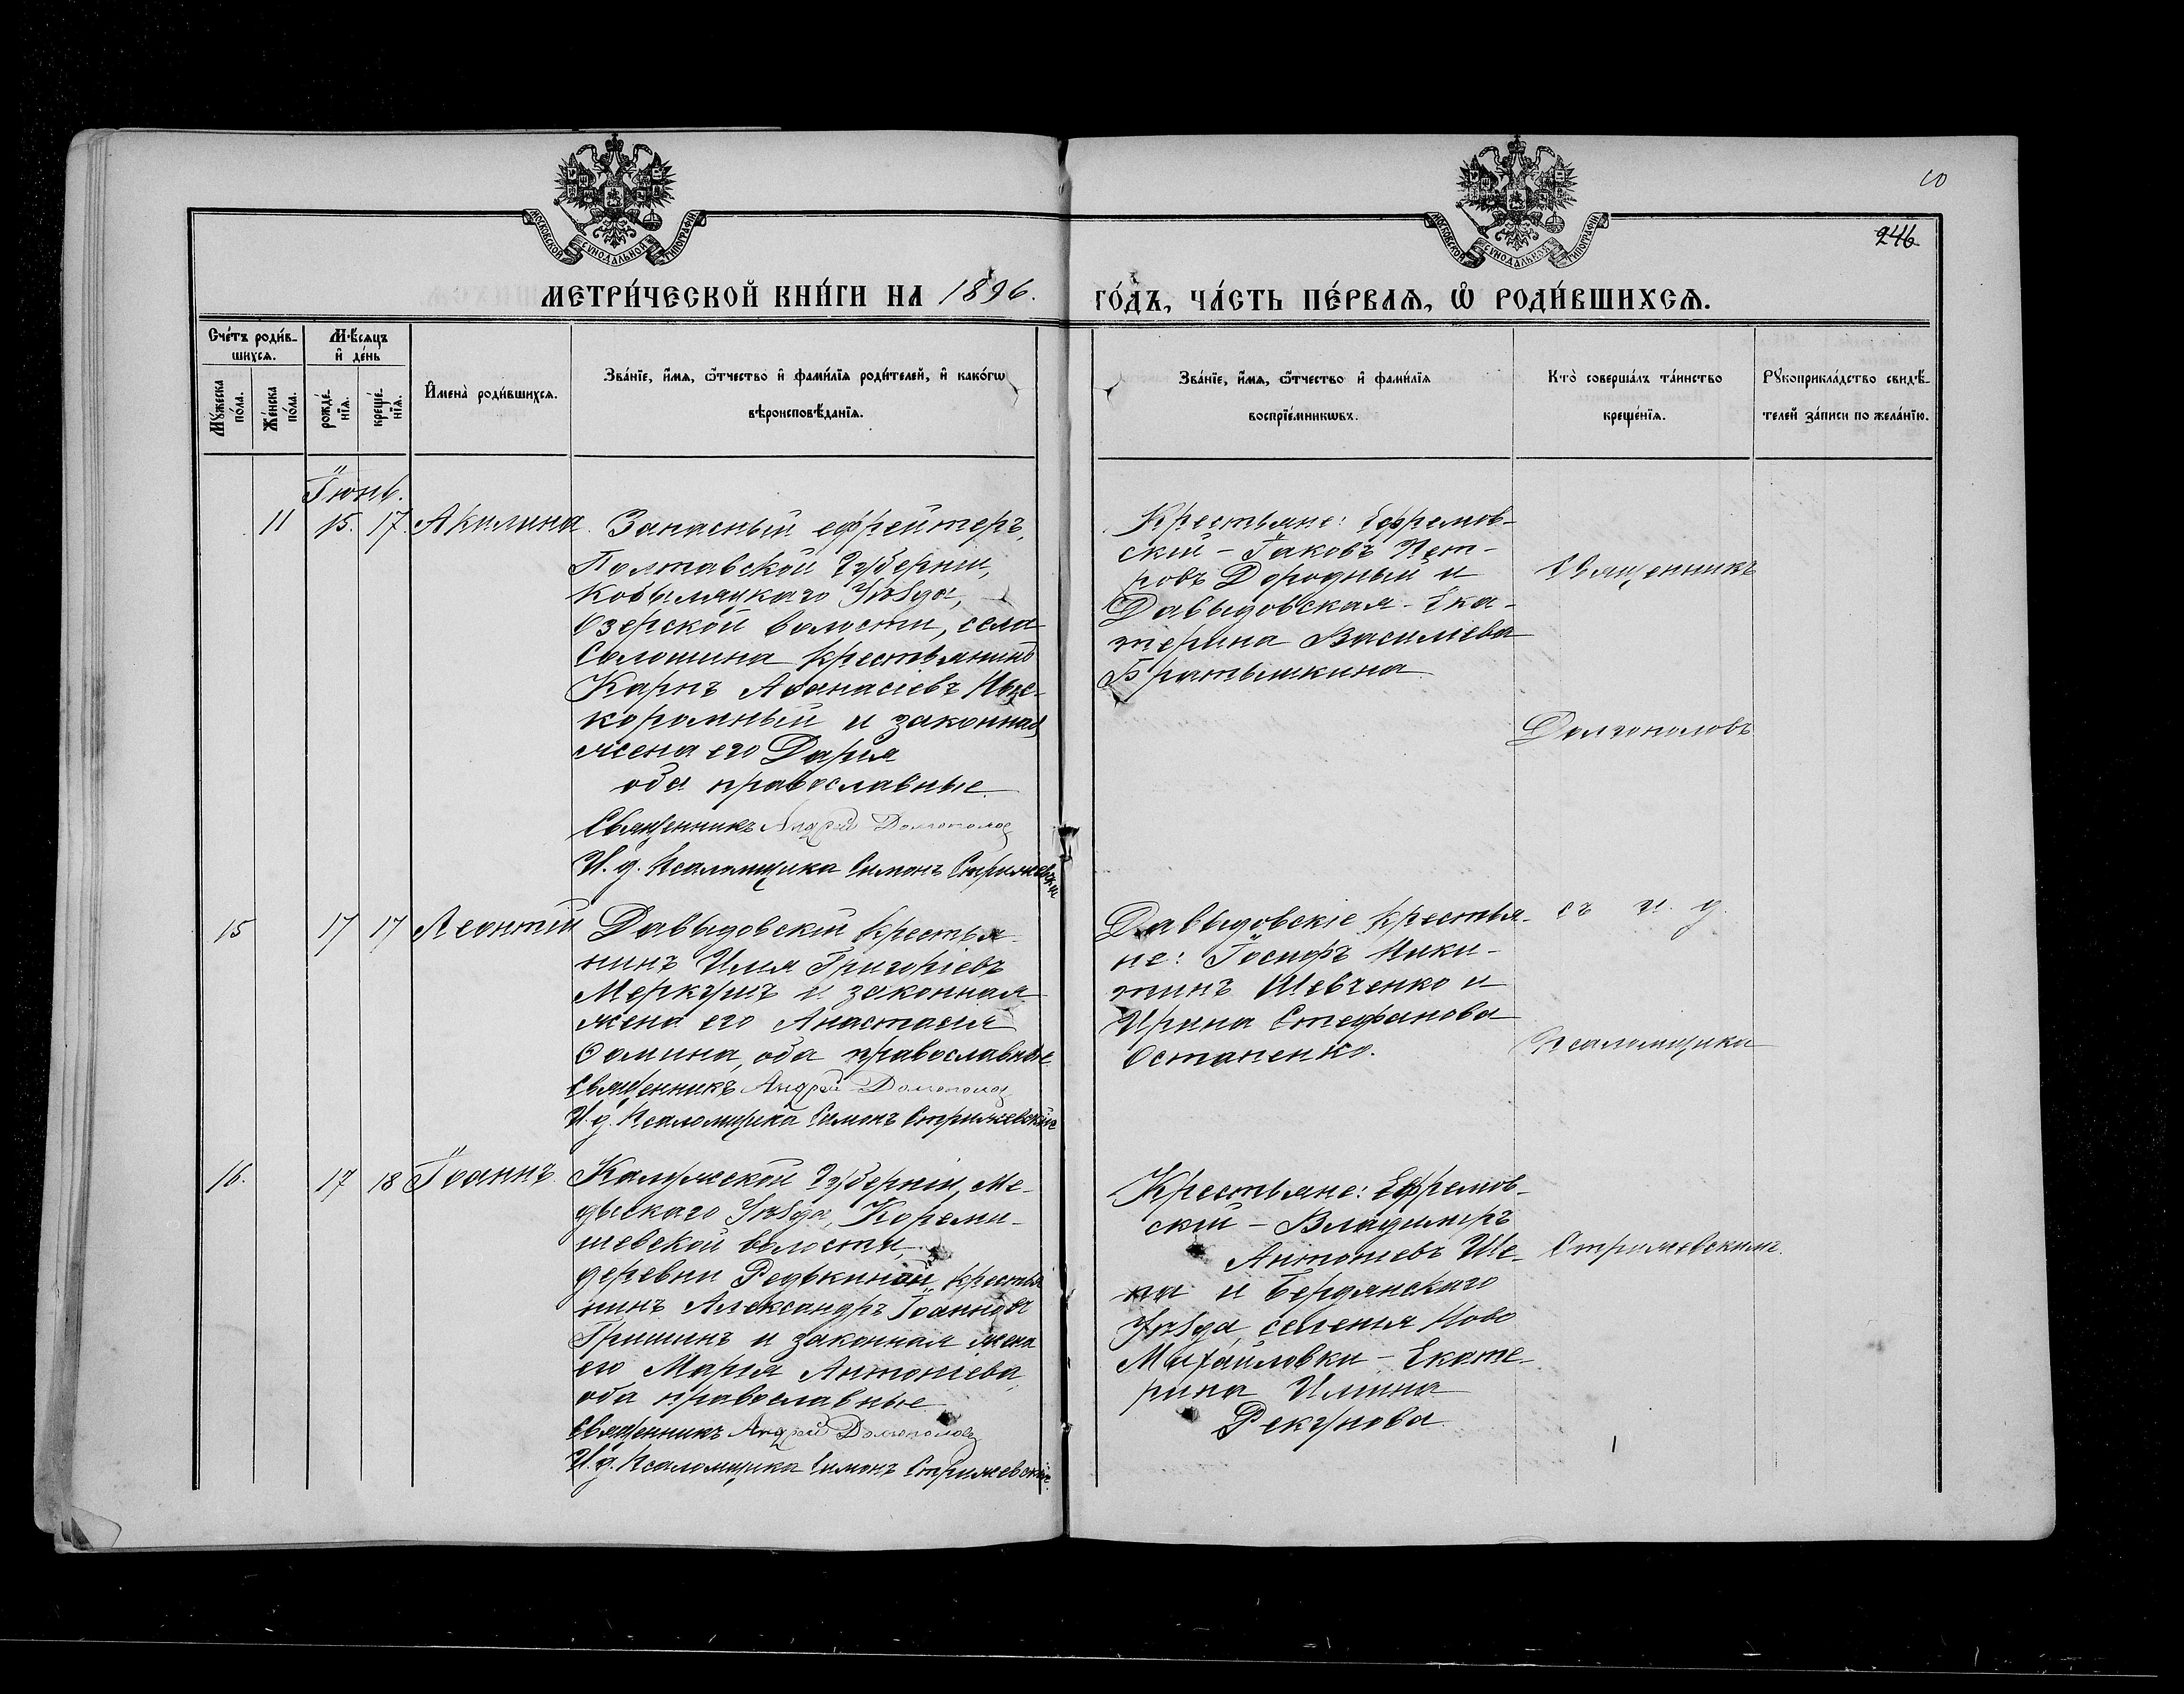 10
246
МОСКОВСКОЙ СУНОДАЛЬНОЙ ТИПОГРАФИИ
МОСКОВСКОЙ СУНОДАЛЬНОЙ ТИПОГРАФИИ
МЕТРИ́ЧЕСКОЙ КНИ́ГИ НА 1896.
ГО́ДЪ, ЧА́СТЬ ПЕ́РВАѦ, Ѽ РОДИ́ВШИХСѦ.
Счéтъ роди́в-
шихсѧ.
Мꙋжеска по́ла.
Же́нска по́ла.
Мѣ́сѧцъ
и҆ де́нь
рожде́-
нїѧ.
креще́-
нїѧ.
И҆мена̀ роди́вшихсѧ.
Зва́нїе, и҆́мѧ, ѻ҆́тчество и҆ фами́лїѧ роди́телей, и҆ како́гѡ
вѣроисповѣ́данїѧ.
Зва́нїе, и҆́мѧ, ѻ҆́тчество и҆ фами́лїѧ
воспрїе́мникѡвъ.
Кто̀ соверша́лъ та́инство
креще́нїѧ.
Рꙋкоприкла́дство свидѣ́-
телей за́писи по жела́нїю.
Іюнь.
11 15. 17. Акилина
Запасный ефрейтеръ,
Полтавской Губерніи,
Кобыляцкаго Уѣзда,
Озерской волости, села
Солошина крестьянинъ
Карпъ Аѳанасіевъ
и законная
жена его Дарія
оба православные.
Священникъ Андрей Долгополовъ
И. д. Псаломщика Симонъ Стрижевскій
Крестьяне: Ефремов-
скій - Іаковъ Пет-
ровъ Дородный и
Давыдовская - Ека-
терина Василіева
Братышкина
Священникъ
Долгополовъ
15 17 17 Леонтій
Давыдовскій крестья-
нинъ Илія Григоріевъ
Меркушъ и законная
жена его Анастасія
Ѳомина, оба православные.
Священникъ Андрей Долгополовъ
И. д. Псаломщика Симонъ Стрижевскій
Давыдовскіе крестья-
не: Іосифъ Ники-
тинъ Шевченко и
Ирина Стефанова
Остапенко.
съ и. д.
Псаломщика
16. 17 18 Іоаннъ.
Калужской Губерніи, Ме-
дыскаго Уѣзда, Кореми-
шевской волости,
деревни Редькиной, крестья
нинъ Александръ Іоанновъ
Гришинъ и законная жена
его Марія Антоніева,
оба православные
Священникъ Андрей Долгополовъ
И. д. Псаломщика Симонъ Стрижевскій
Крестьяне: Ефремов-
скій - Владимиръ
Антоніевъ Ше-
па и Бердянскаго
Уѣзда, селенія Ново
Михайловки - Екате-
рина Иліина
Рекунова.
Стрижевскимъ.